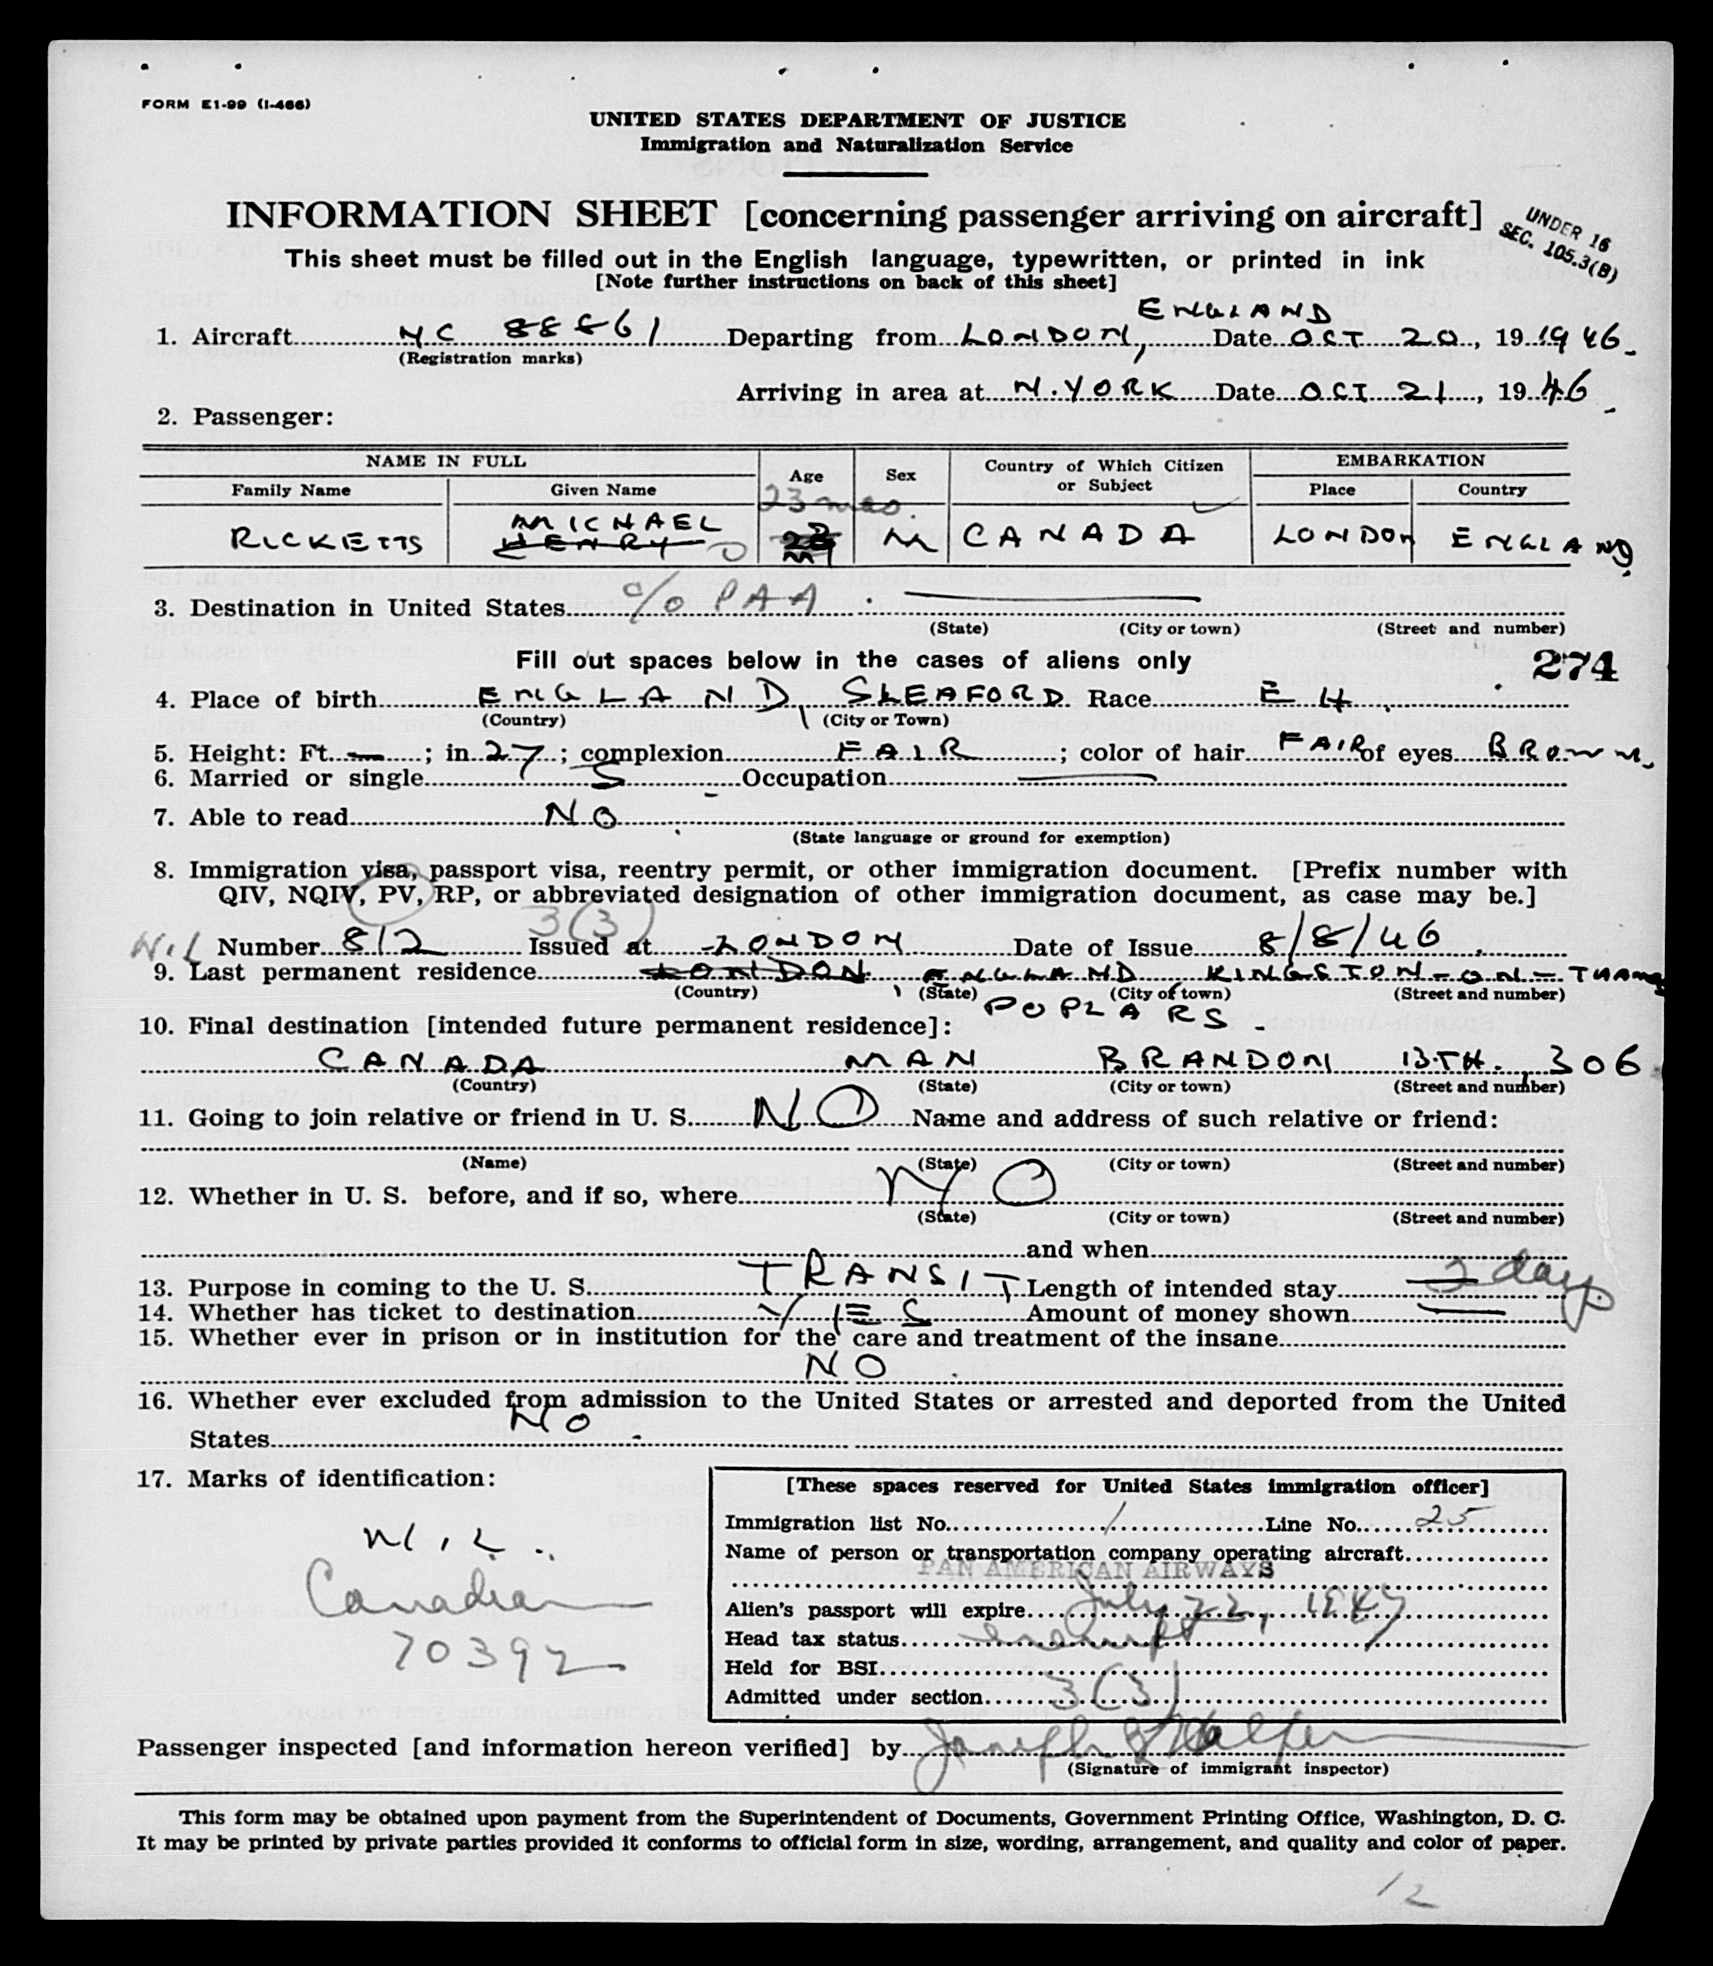 FORM E1-99 (I-466)
UNITED STATES DEPARTMENT OF JUSTICE
Immigration and Naturalization Service
INFORMATION SHEET [concerning passenger arriving on aircraft]
UNDER 16
SEC. 105.3(B)
This sheet must be filled out in the English language, typewritten, or printed in ink
[Note further instructions on back of this sheet]
ENGLAND
1. Aircraft NC 88861 Departing from LONDON, Date OCT 20, 19 1946.
(Registration marks)
Arriving in area at N.YORK Date OCT 21, 19 46.
2. Passenger:
NAME IN FULL Age Sex Country of Which Citizen or Subject EMBARKATION
Family Name Given Name Place Country
23 mos.
MICHAEL
RICKETTS HENRY M CANADA LONDON ENGLAND.
3. Destination in United States c/o PAA
(State) (City or town) (Street and number)
Fill out spaces below in the cases of aliens only
274
4. Place of birth ENGLAND, SLEAFORD Race
(Country) (City or Town)
5. Height: Ft. — ; in. 27 ; complexion FAIR ; color of hair FAIR of eyes BROWN.
6. Married or single S Occupation —
7. Able to read NO
(State language or ground for exemption)
8. Immigration visa, passport visa, reentry permit, or other immigration document. [Prefix number with
QIV, NQIV, PV, RP, or abbreviated designation of other immigration document, as case may be.]
3(3)
Nil Number 812 Issued at LONDON Date of Issue 8/8/46.
9. Last permanent residence LONDON, ENGLAND, KINGSTON-ON-THAMES
(Country) (State) (City of town) (Street and number)
POPLARS.
10. Final destination [intended future permanent residence]:
CANADA MAN BRANDON 13TH., 306
(Country) (State) (City or town) (Street and number)
11. Going to join relative or friend in U. S. NO Name and address of such relative or friend:
(Name) (State) (City or town) (Street and number)
12. Whether in U. S. before, and if so, where NO
(State) (City or town) (Street and number)
and when
13. Purpose in coming to the U. S. TRANSIT Length of intended stay 2 days
14. Whether has ticket to destination YES Amount of money shown —
15. Whether ever in prison or in institution for the care and treatment of the insane
NO
16. Whether ever excluded from admission to the United States or arrested and deported from the United
States NO.
17. Marks of identification:
NIL.
Canadian
70392
[These spaces reserved for United States immigration officer]
Immigration list No. 1 Line No. 25
Name of person or transportation company operating aircraft
PAN AMERICAN AIRWAYS
Alien's passport will expire July 22, 1947
Head tax status exempt
Held for BSI
Admitted under section 3(3)
Passenger inspected [and information hereon verified] by Joseph
(Signature of immigrant inspector)
This form may be obtained upon payment from the Superintendent of Documents, Government Printing Office, Washington, D. C.
It may be printed by private parties provided it conforms to official form in size, wording, arrangement, and quality and color of paper.
12